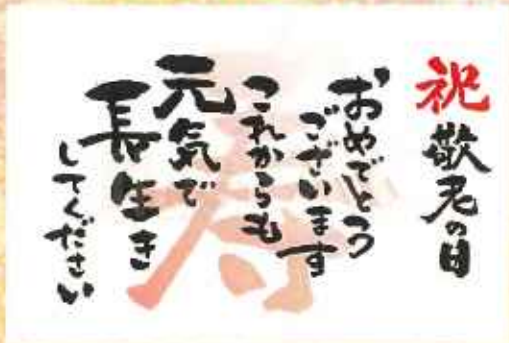 祝敬老の日
おめでとう
ございます
これからも
元気で
長生き
してください
寿